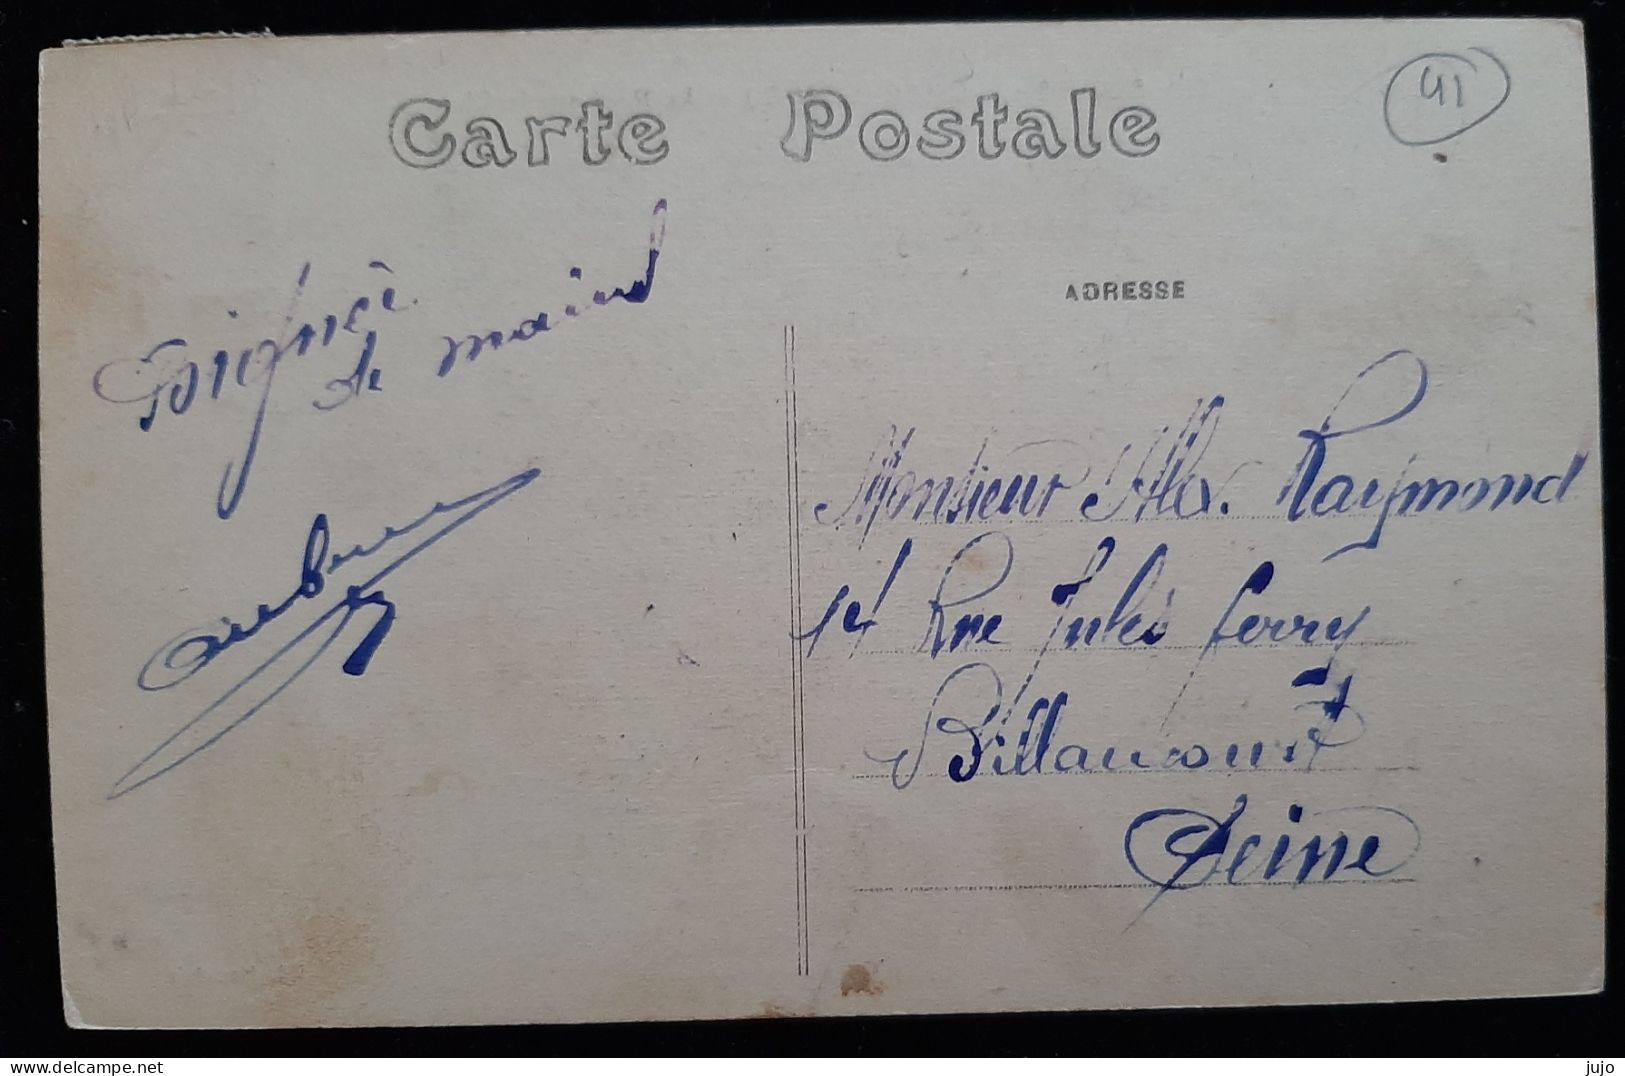 Carte Postale
41
Poignée
de mains
ADRESSE
Monsieur Alex. Raymond
14 Rue Jules Ferry
Billancourt
Seine
delcampe.net
jujo